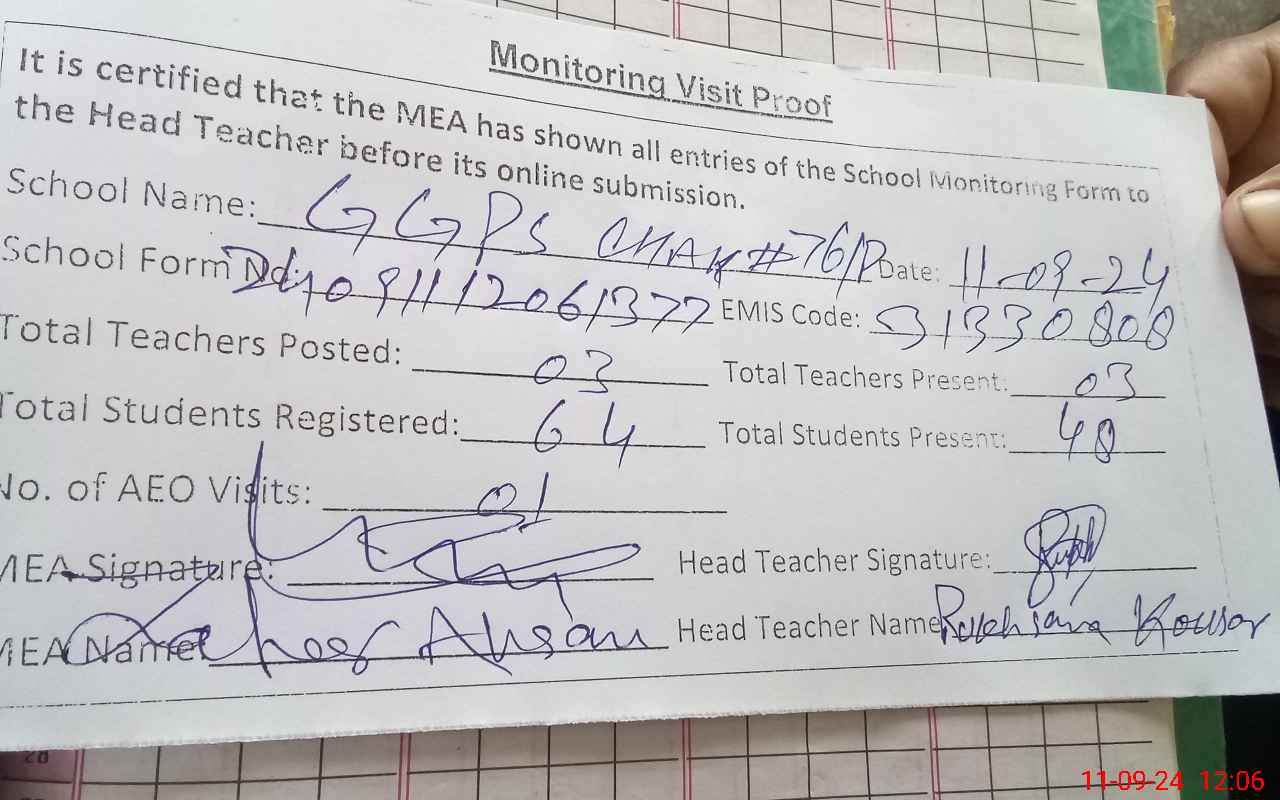 Monitoring Visit Proof
It is certified that the MEA has shown all entries of the School Monitoring Form to
the Head Teacher before its online submission.
School Name: GGPS CHAK #76/P Date: 11-09-24
School Form No: 240911112061377 EMIS Code: 31330808
Total Teachers Posted: 03 Total Teachers Present: 03
Total Students Registered: 64 Total Students Present: 40
No. of AEO Visits: 01
MEA Signature: Head Teacher Signature:
MEA Name: Ahsan Head Teacher Name Rukhsana Kousar
11-09-24 12:06